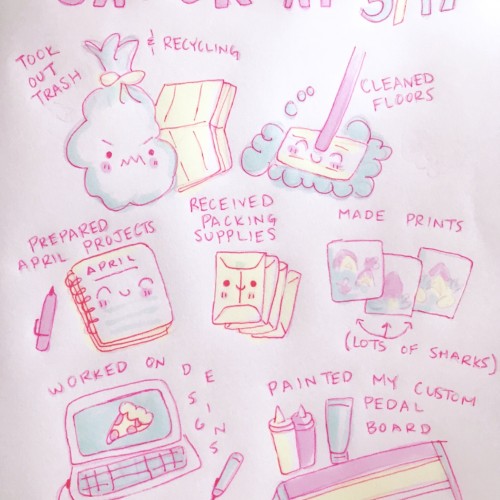 3/17
TOOK
OUT
TRASH
& RECYCLING
CLEANED
FLOORS
PREPARED
APRIL PROJECTS
APRIL
RECEIVED
PACKING
SUPPLIES
MADE PRINTS
(LOTS OF SHARKS)
WORKED ON DESIGNS
PAINTED MY CUSTOM
PEDAL
BOARD